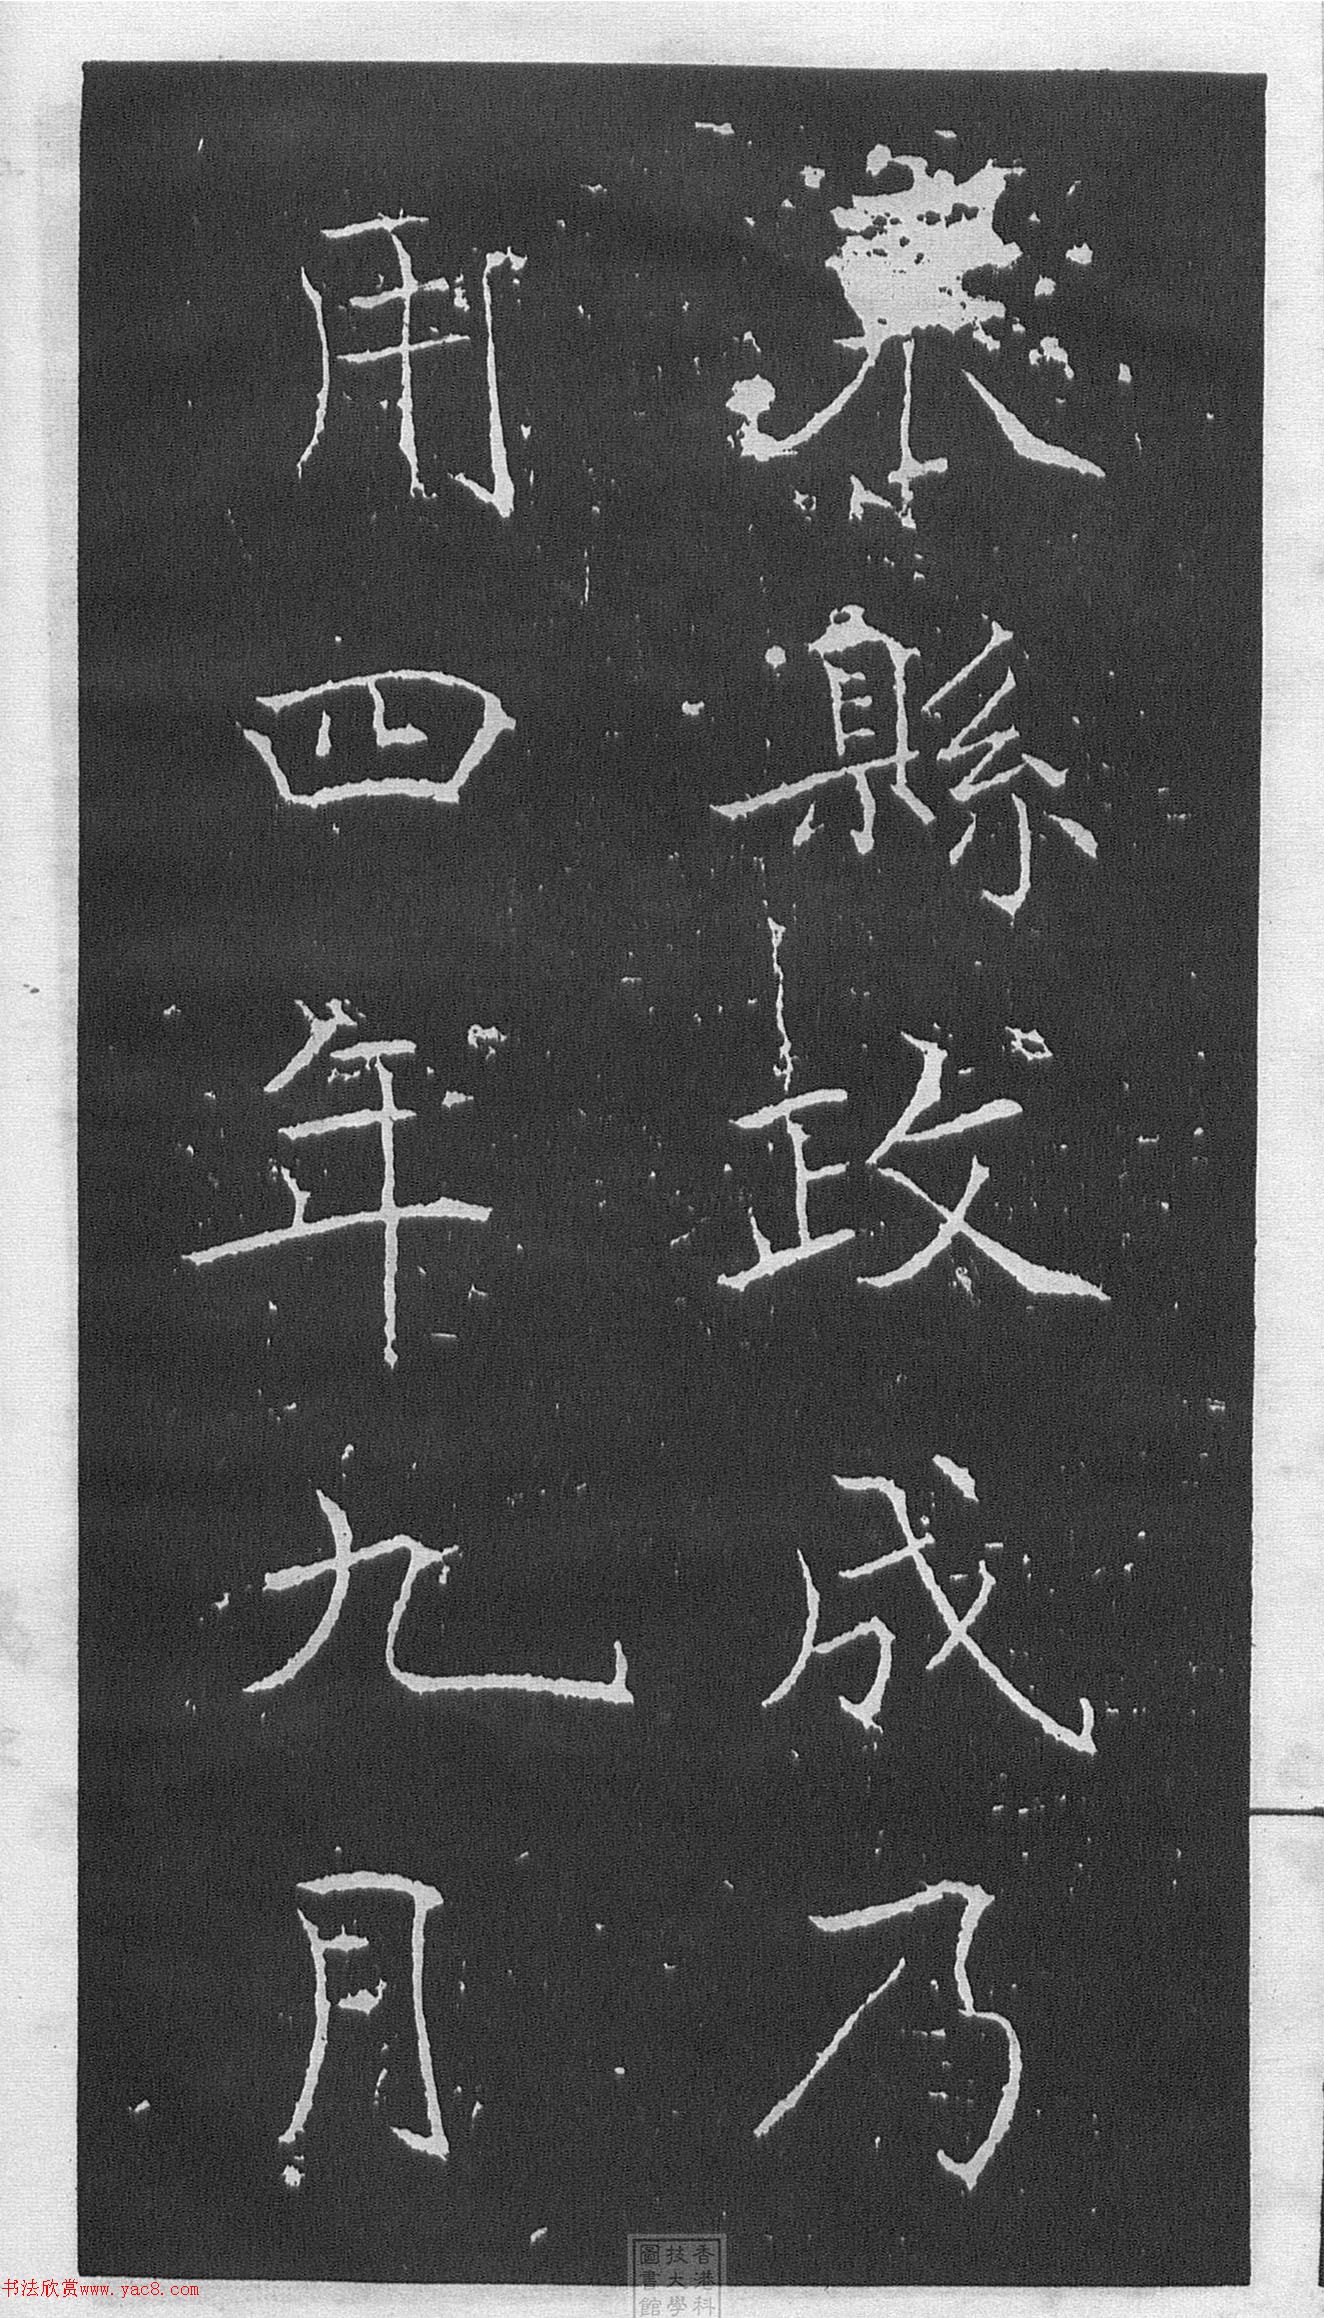 縣政成乃
用四年九月
香港科
技大學
圖書館
书法欣赏www.yac8.com